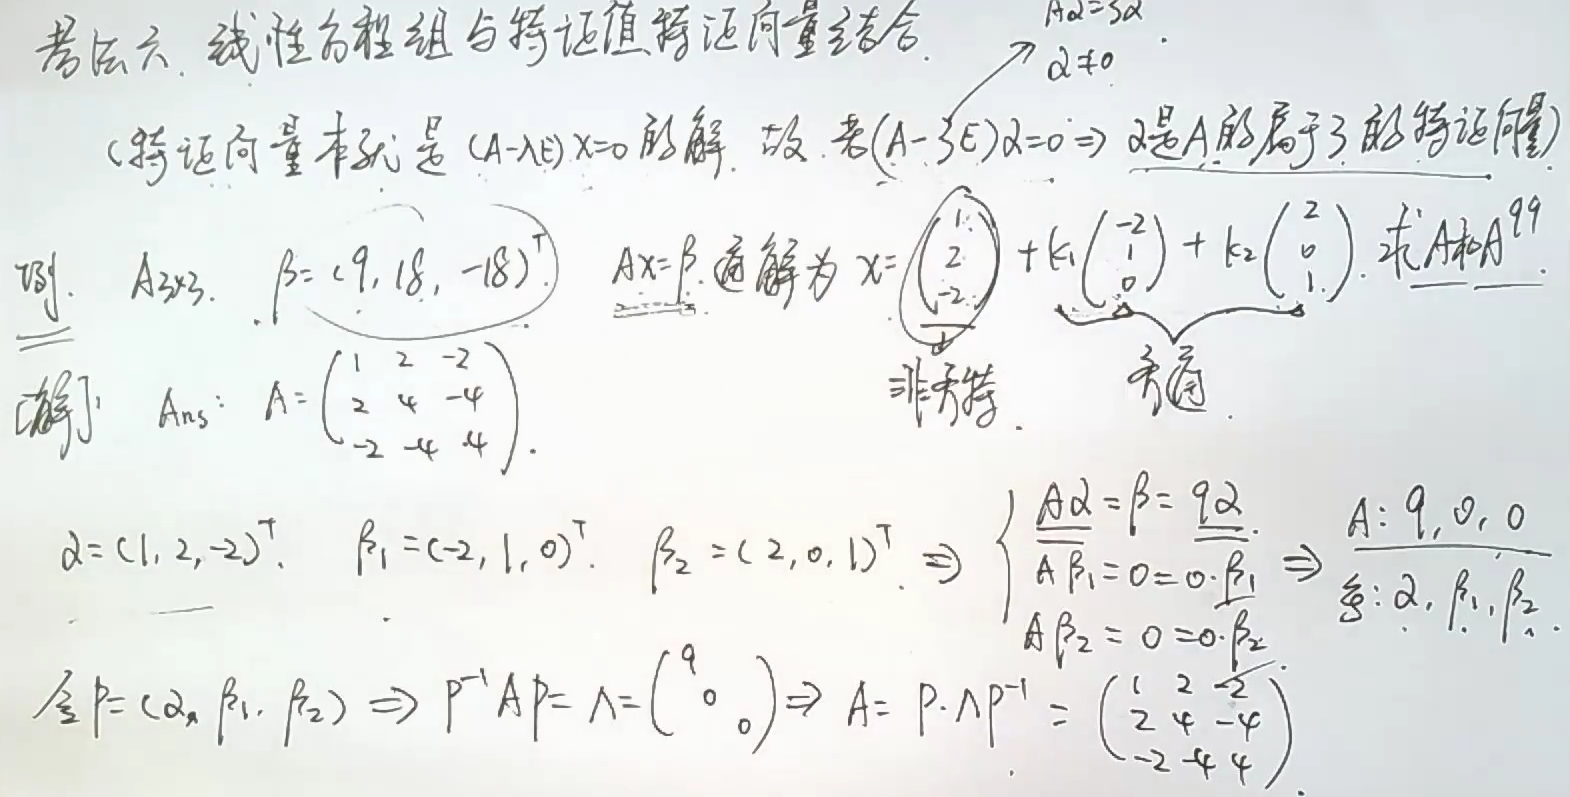 考法六. 线性方程组与特征值特征向量结合.
Aα=3α
α≠0
(特征向量本就是 (A-λE)X=0 的解. 故. 若(A-3E)α=0 ⇒ α是A的属于3的特征向量)
例. A3×3. β=(9, 18, -18)ᵀ Ax=β 通解为 x= (1 2 -2) + k₁ (-2 1 0) + k₂ (2 0 1). 求A和A⁹⁹.
非齐特. 齐通.
[解]: Ans: A= (1 2 -2
2 4 -4
-2 -4 4).
α=(1, 2, -2)ᵀ. β₁=(-2, 1, 0)ᵀ. β₂=(2, 0, 1)ᵀ. ⇒ { Aα=β=9α.
Aβ₁=0=0·β₁
Aβ₂=0=0·β₂.
⇒ A: 9, 0, 0
ξ: α, β₁, β₂.
令 P=(α, β₁, β₂) ⇒ P⁻¹AP=Λ= (9 0 0) ⇒ A= P·ΛP⁻¹ = (1 2 -2
2 4 -4
-2 -4 4).